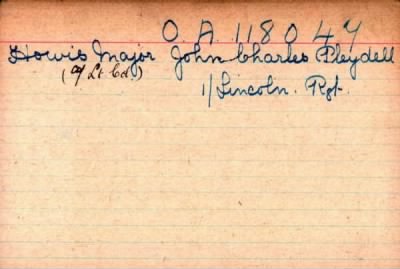 O.A. 118047
Howis Major John Charles Pleydell
(a/ Lt Col.)
1/Lincoln. Rgt.